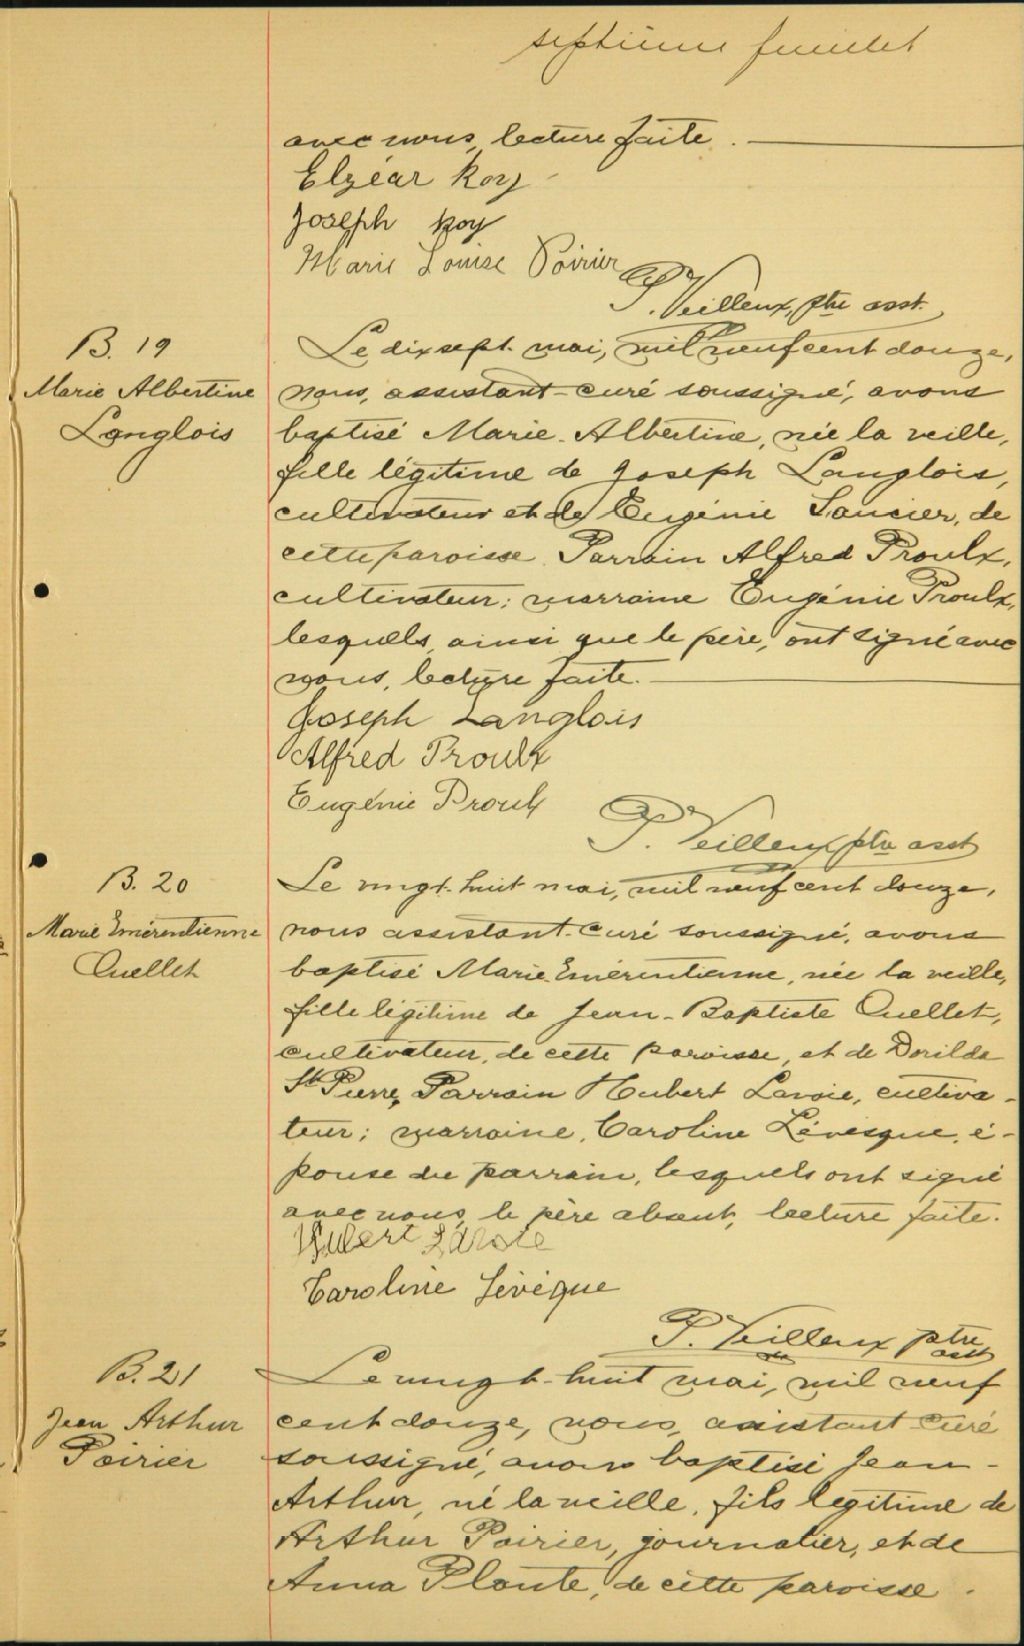 septième feuillet
avec nous, lecture faite.
Elzéar Roy
Joseph Roy
Marie Louise Poirier
P. Veilleux, ptre asst.
B. 19
Marie Albertine
Langlois
Le dix sept mai, mil neuf cent douze,
nous, assistant-curé soussigné, avons
baptisé Marie-Albertine, née la veille,
fille légitime de Joseph Langlois,
cultivateur et de Eugénie Saucier, de
cette paroisse. Parrain Alfred Proulx,
cultivateur; marraine Eugénie Proulx,
lesquels, ainsi que le père, ont signé avec
nous, lecture faite.
Joseph Langlois
Alfred Proulx
Eugénie Proulx
P. Veilleux ptre asst
B. 20
Marie Emérentienne
Ouellet
Le vingt-huit mai, mil neuf cent douze,
nous assistant-curé soussigné, avons
baptisé Marie-Emérentienne, née la veille,
fille légitime de Jean-Baptiste Ouellet,
cultivateur, de cette paroisse, et de Dorilda
St Pierre, Parrain Hubert Lavoie, cultiva-
teur; marraine, Caroline Lévesque, é-
pouse du parrain, lesquels ont signé
avec nous, le père absent, lecture faite.
Hubert Lavoie
Caroline Lévêque
P. Veilleux ptre asst
B. 21
Jean Arthur
Poirier
Le vingt-huit mai, mil neuf
cent douze, nous, assistant curé
soussigné, avons baptisé Jean-
Arthur, né la veille, fils légitime de
Arthur Poirier, journalier, et de
Anna Plante, de cette paroisse.